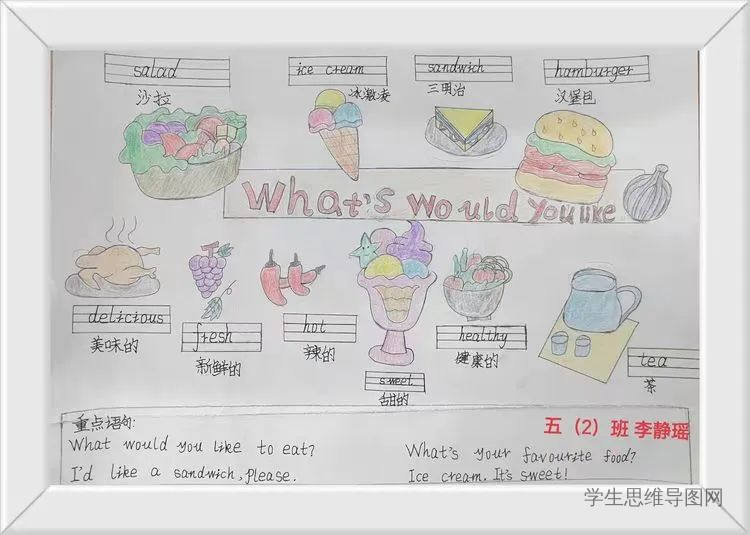 salad
沙拉
ice cream
冰激凌
sandwich
三明治
hamburger
汉堡包
What's would you like
delicious
美味的
fresh
新鲜的
hot
辣的
sweet
甜的
healthy
健康的
tea
茶
重点语句:
What would you like to eat?
I'd like a sandwich, please.
五（2）班 李静瑶
What's your favourite food?
Ice cream. It's sweet!
学生思维导图网